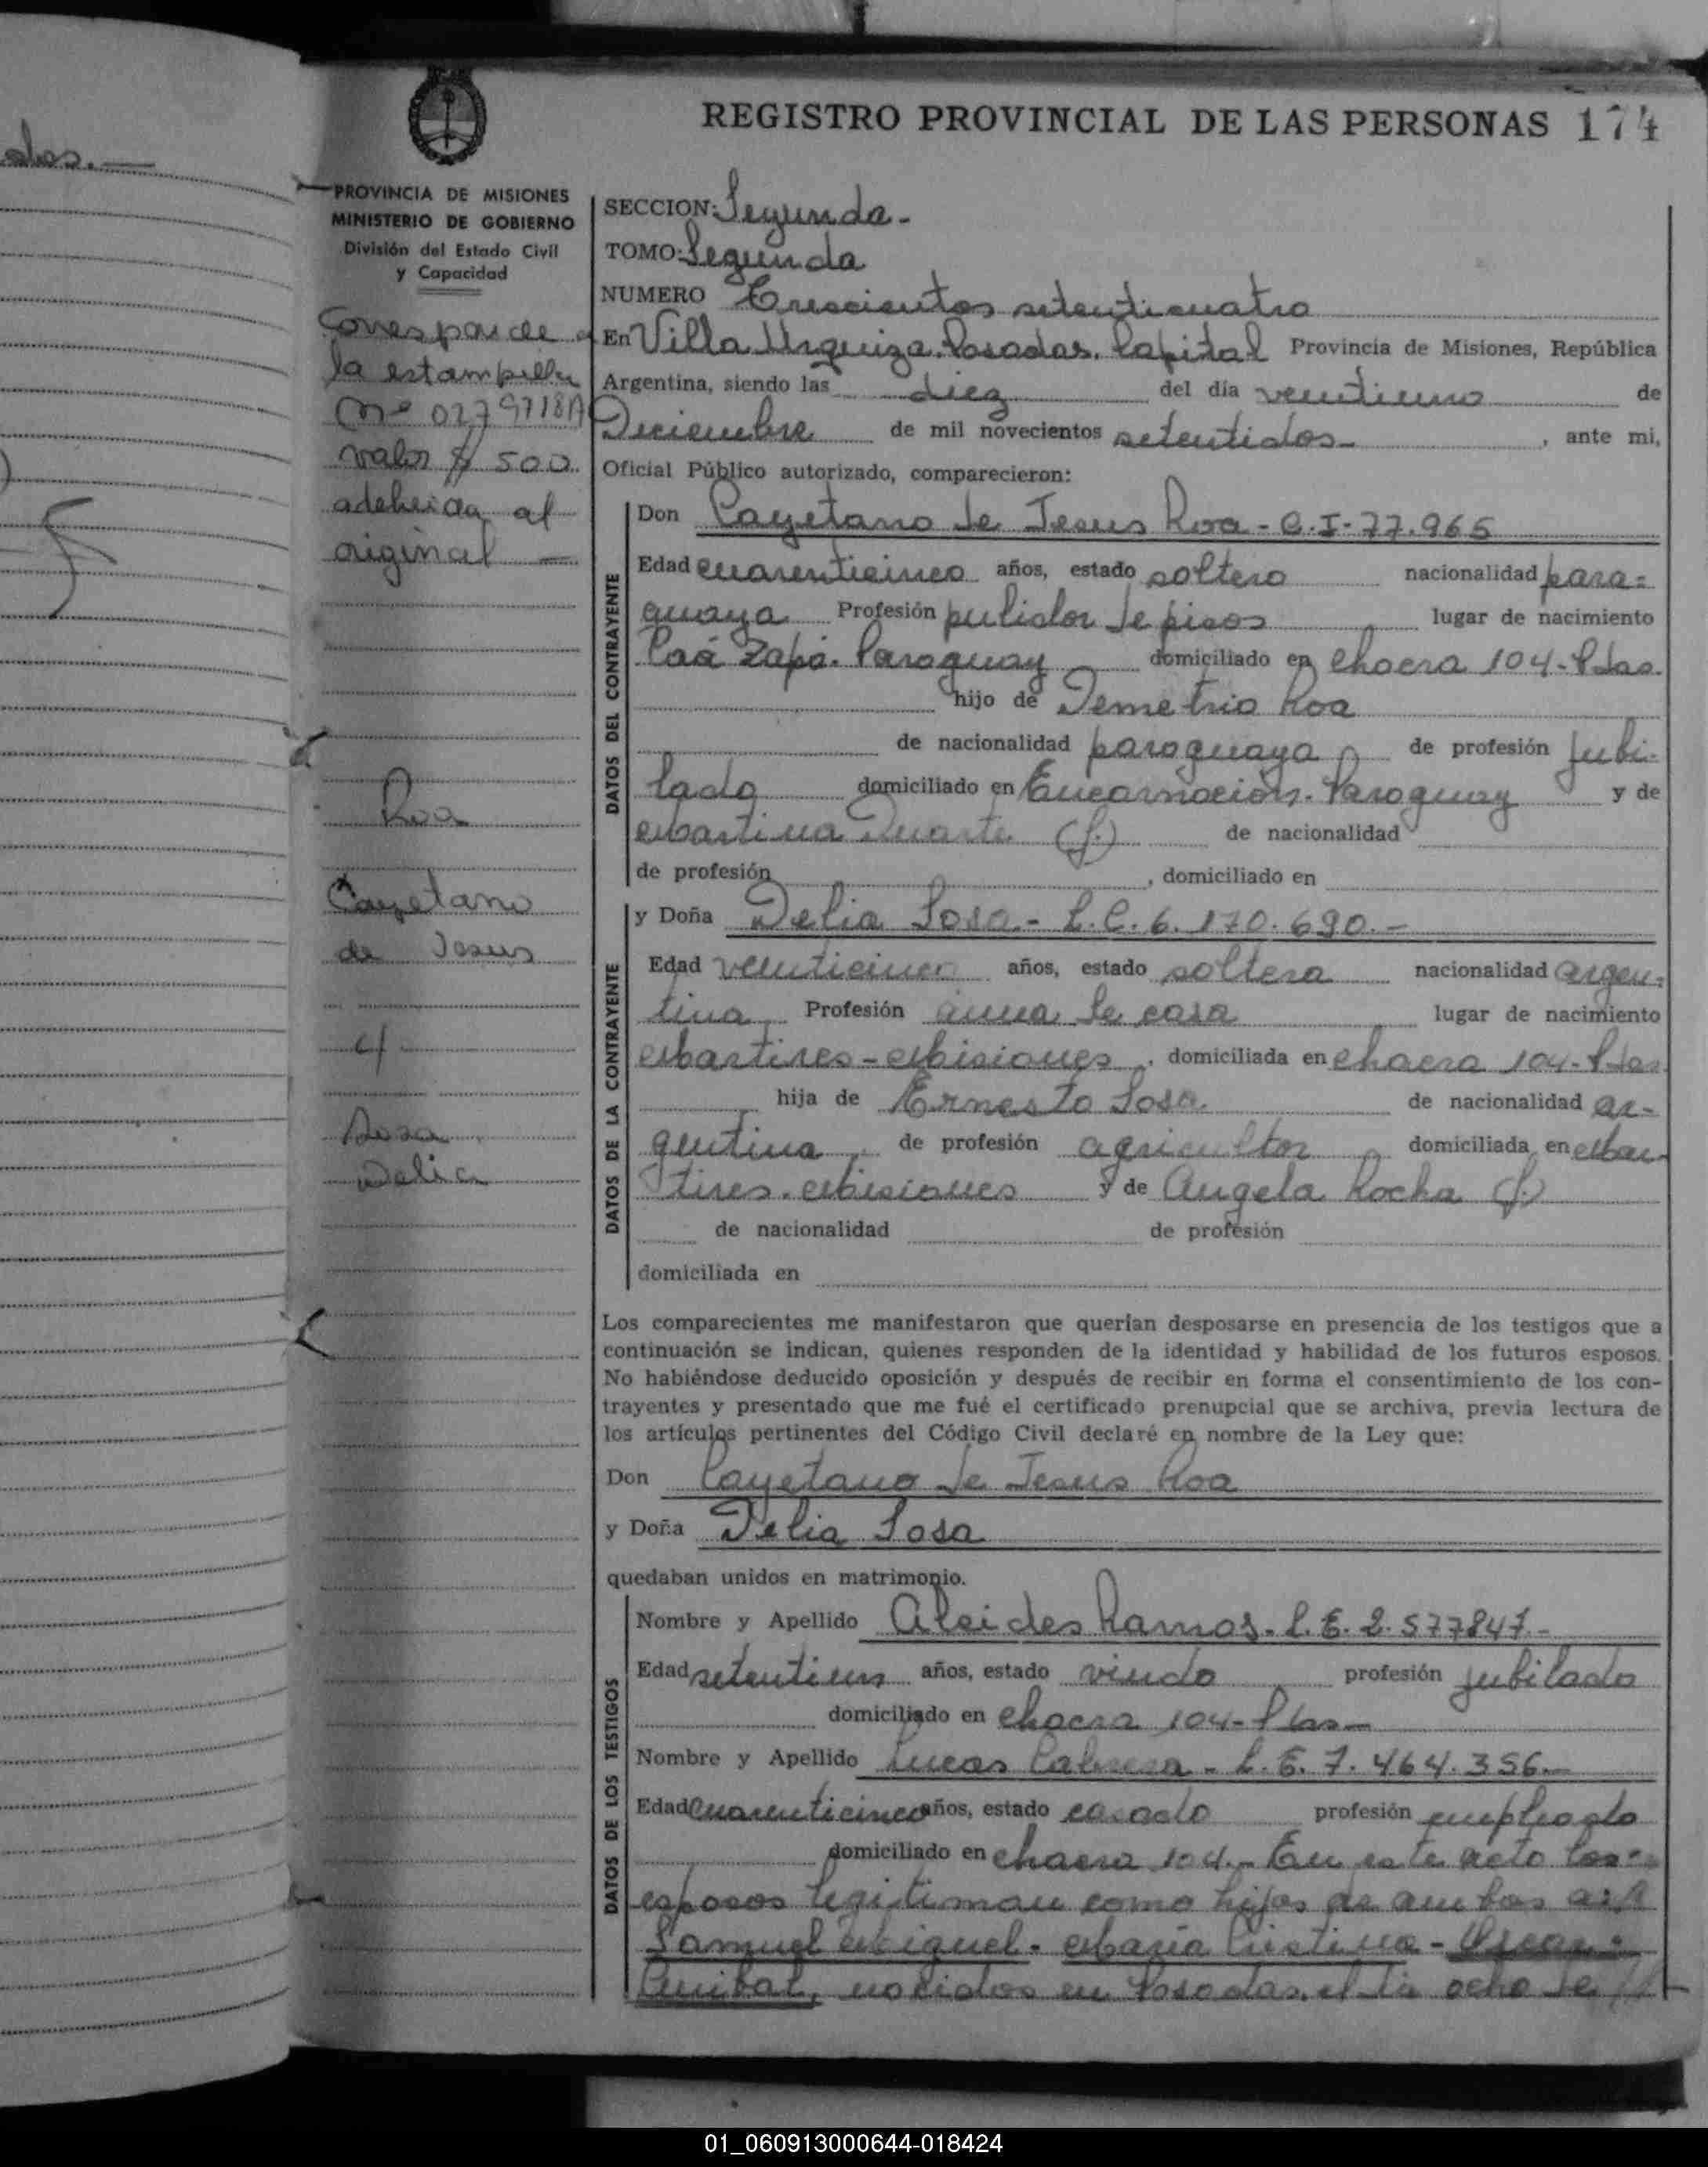 dos.—
REGISTRO PROVINCIAL DE LAS PERSONAS 174
PROVINCIA DE MISIONES
MINISTERIO DE GOBIERNO
División del Estado Civil
y Capacidad
Corresponde a
la estampilla
Nº 0279718A
valor $ 500
adherida al
original —
Roa
Cayetano
de Jesus
c/
Sosa
Delia
SECCION: Segunda-
TOMO: Segunda
NUMERO Trescientos setenticuatro
En Villa Urquiza. Posadas. Capital Provincia de Misiones, República
Argentina, siendo las diez del día veintiuno de
Diciembre de mil novecientos setentidos- , ante mi,
Oficial Público autorizado, comparecieron:
DATOS DEL CONTRAYENTE
Don Cayetano de Jesus Roa - C.I- 77.965
Edad cuarenticinco años, estado soltero nacionalidad para=
guaya Profesión pulidor de pisos lugar de nacimiento
Caá Zapá. Paraguay domiciliado en chacra 104-Pdas.
hijo de Demetrio Roa
de nacionalidad paraguaya de profesión jubi-
lado domiciliado en Encarnación. Paraguay y de
Martina Duarte (f.) de nacionalidad
de profesión , domiciliado en
DATOS DE LA CONTRAYENTE
y Doña Delia Sosa.- L.C. 6.170.690.-
Edad venticinco años, estado soltera nacionalidad argen-
tina Profesión ama de casa lugar de nacimiento
Martires-Misiones , domiciliada en chacra 104-Pdas
hija de Ernesto Sosa. de nacionalidad ar-
gentina , de profesión agricultor domiciliada en Mar-
tires. Misiones y de Angela Rocha (f.)
de nacionalidad de profesión
domiciliada en
Los comparecientes me manifestaron que querían desposarse en presencia de los testigos que a
continuación se indican, quienes responden de la identidad y habilidad de los futuros esposos.
No habiéndose deducido oposición y después de recibir en forma el consentimiento de los con-
trayentes y presentado que me fué el certificado prenupcial que se archiva, previa lectura de
los artículos pertinentes del Código Civil declaré en nombre de la Ley que:
Don Cayetano de Jesus Roa
y Doña Delia Sosa
quedaban unidos en matrimonio.
DATOS DE LOS TESTIGOS
Nombre y Apellido Alcides Ramos. L.E. 2.577847.-
Edad setentiun años, estado viudo profesión jubilado
domiciliado en chacra 104-Pdas-
Nombre y Apellido Lucas Cabrera - L.E. 7.464.356.-
Edad cuarenticinco años, estado casado profesión empleado
domiciliado en chacra 104.- En este acto los
esposos legitiman como hijos de ambos a:
Samuel Miguel - Maria Cristina - Oscar
Anibal, nacidos en Posadas, el dia ocho de
01_060913000644-018424